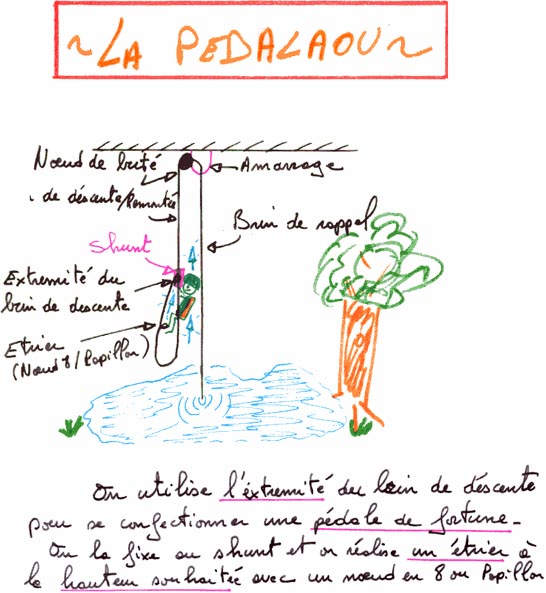 ~LA PEDALAOU~
Nœud de buté
Amarrage
. de déscente/Remontée
Brin de rappel
Shunt
Extremité du
brin de descente
Etrier
(Nœud 8/Papillon)
On utilise l'éxtremité du brin de déscente
pour se confectionner une pédale de fortune.
On la fixe au shunt et on réalise un étrier à
la hauteur souhaitée avec un nœud en 8 ou Papillon